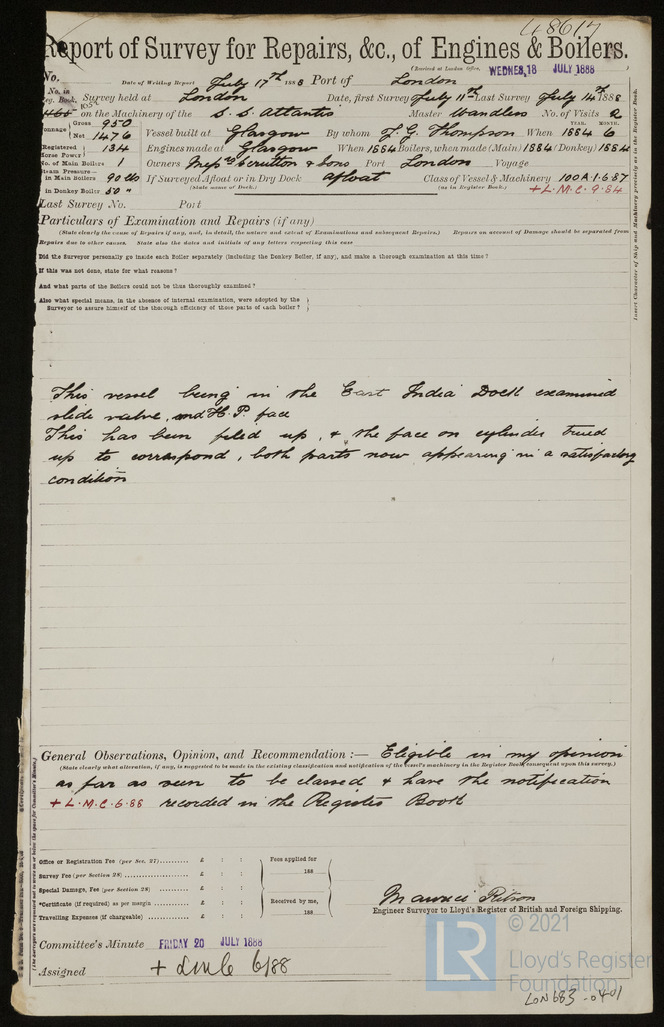 48617
Report of Survey for Repairs, &c., of Engines & Boilers.
(Received at London Office, WEDNES. 18 JULY 1888)
No. Date of Writing Report July 17th 1888 Port of London
No. in Reg. Book. Survey held at London Date, first Survey July 11th Last Survey July 14th 1888
on the Machinery of the S. S. Atlantis Master Wandless No. of Visits 2
Tonnage Gross 950 Net 1476 Vessel built at Glasgow By whom J. G. Thompson When YEAR. 1884 MONTH. 6
Registered Horse Power 134 Engines made at Glasgow When 1884 Boilers, when made (Main) 1884 (Donkey) 1884
No. of Main Boilers 1 Owners Mess rs Scrutton & Sons Port London Voyage
Steam Pressure— in Main Boilers 90 lbs If Surveyed Afloat or in Dry Dock afloat Class of Vessel & Machinery 100A.1.6.87
in Donkey Boiler 50 " (State name of Dock.) (as in Register Book.) + L.M.C. 9.84
Last Survey No. Port
Particulars of Examination and Repairs (if any)
(State clearly the cause of Repairs if any, and, in detail, the nature and extent of Examinations and subsequent Repairs.) Repairs on account of Damage should be separated from
Repairs due to other causes. State also the dates and initials of any letters respecting this case
Did the Surveyor personally go inside each Boiler separately (including the Donkey Boiler, if any), and make a thorough examination at this time?
If this was not done, state for what reasons?
And what parts of the Boilers could not be thus thoroughly examined?
Also what special means, in the absence of internal examination, were adopted by the
Surveyor to assure himself of the thorough efficiency of those parts of each boiler?
Insert Character of Ship and Machinery precisely as in the Register Book.
This vessel being in the East India Dock examined
slide valve, and H.P. face
This has been filed up, & the face on cylinder trued
up to correspond, both parts now appearing in a satisfactory
condition
General Observations, Opinion, and Recommendation :— Eligible in my opinion
(State clearly what alteration, if any, is suggested to be made in the existing classification and notification of the vessel's machinery in the Register Book consequent upon this survey.)
as far as seen to be classed & have the notification
+ L.M.C. 6.88 recorded in the Register Book
Office or Registration Fee (per Sec. 27) £ : : Fees applied for
Survey Fee (per Section 28) £ : : 188
Special Damage, Fee (per Section 28) £ : :
*Certificate (if required) as per margin £ : : Received by me,
Travelling Expenses (if chargeable) £ : : 188
Maurice Ritson
Engineer Surveyor to Lloyd's Register of British and Foreign Shipping.
Committee's Minute FRIDAY 20 JULY 1888
Assigned + LMC 6/88
LR © 2021
Lloyd's Register
Foundation
LON683-0401